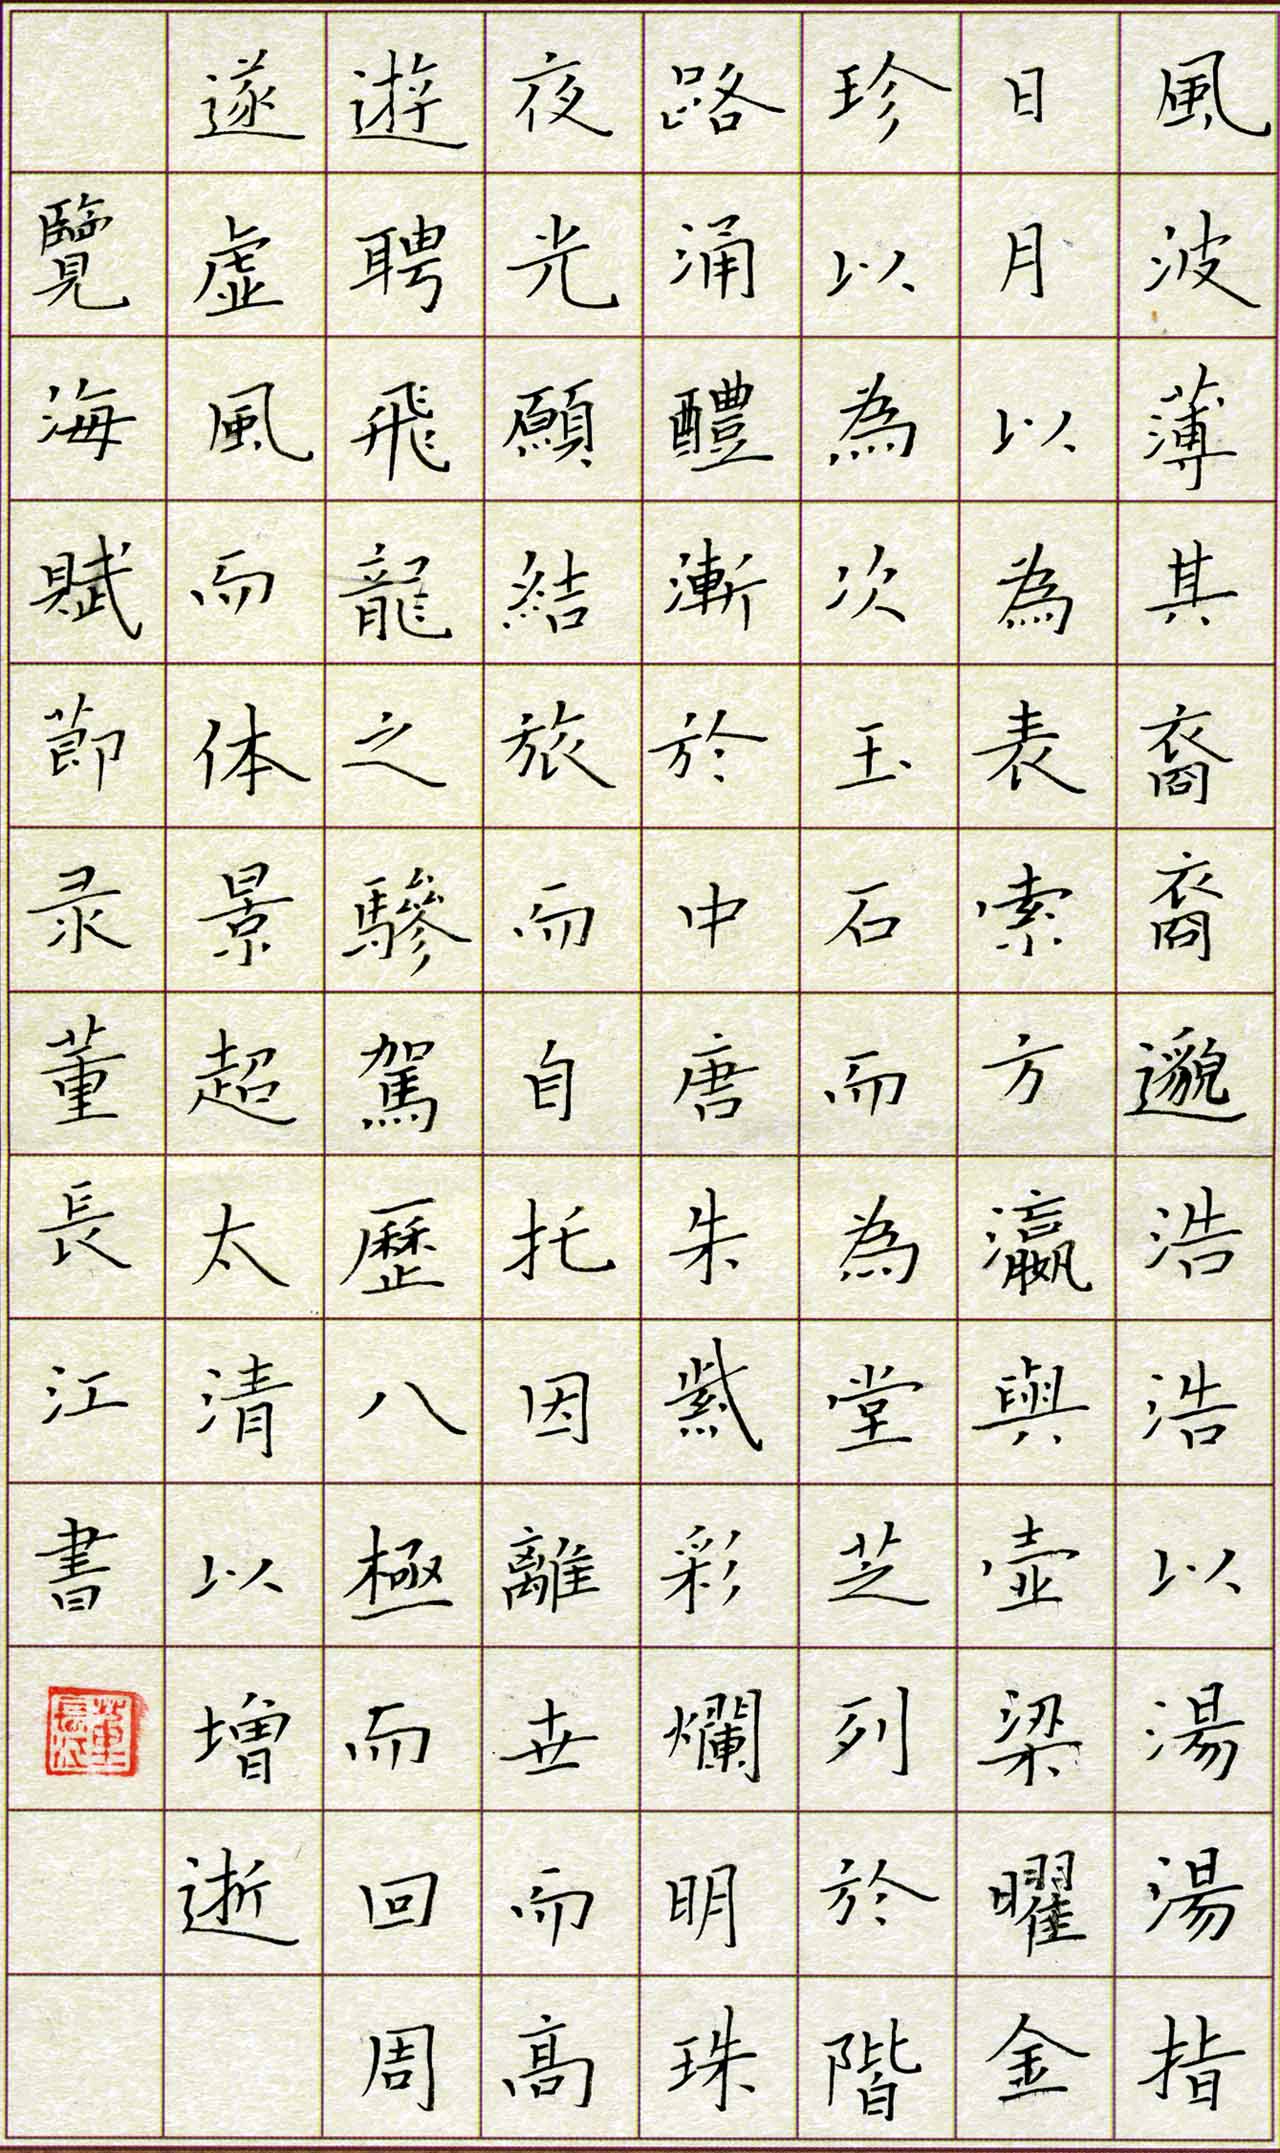 風波薄其裔裔邈浩浩以湯湯指
日月以為表索方瀛與壺梁曜金
珍以為次玉石而為堂芝列於階
路涌醴漸於中唐朱紫彩爛明珠
夜光願結旅而自托因離世而高
遊聘飛龍之驂駕歷八極而回周
遂虛風而体景超太清以增逝
覽海賦節录董長江書
董長江